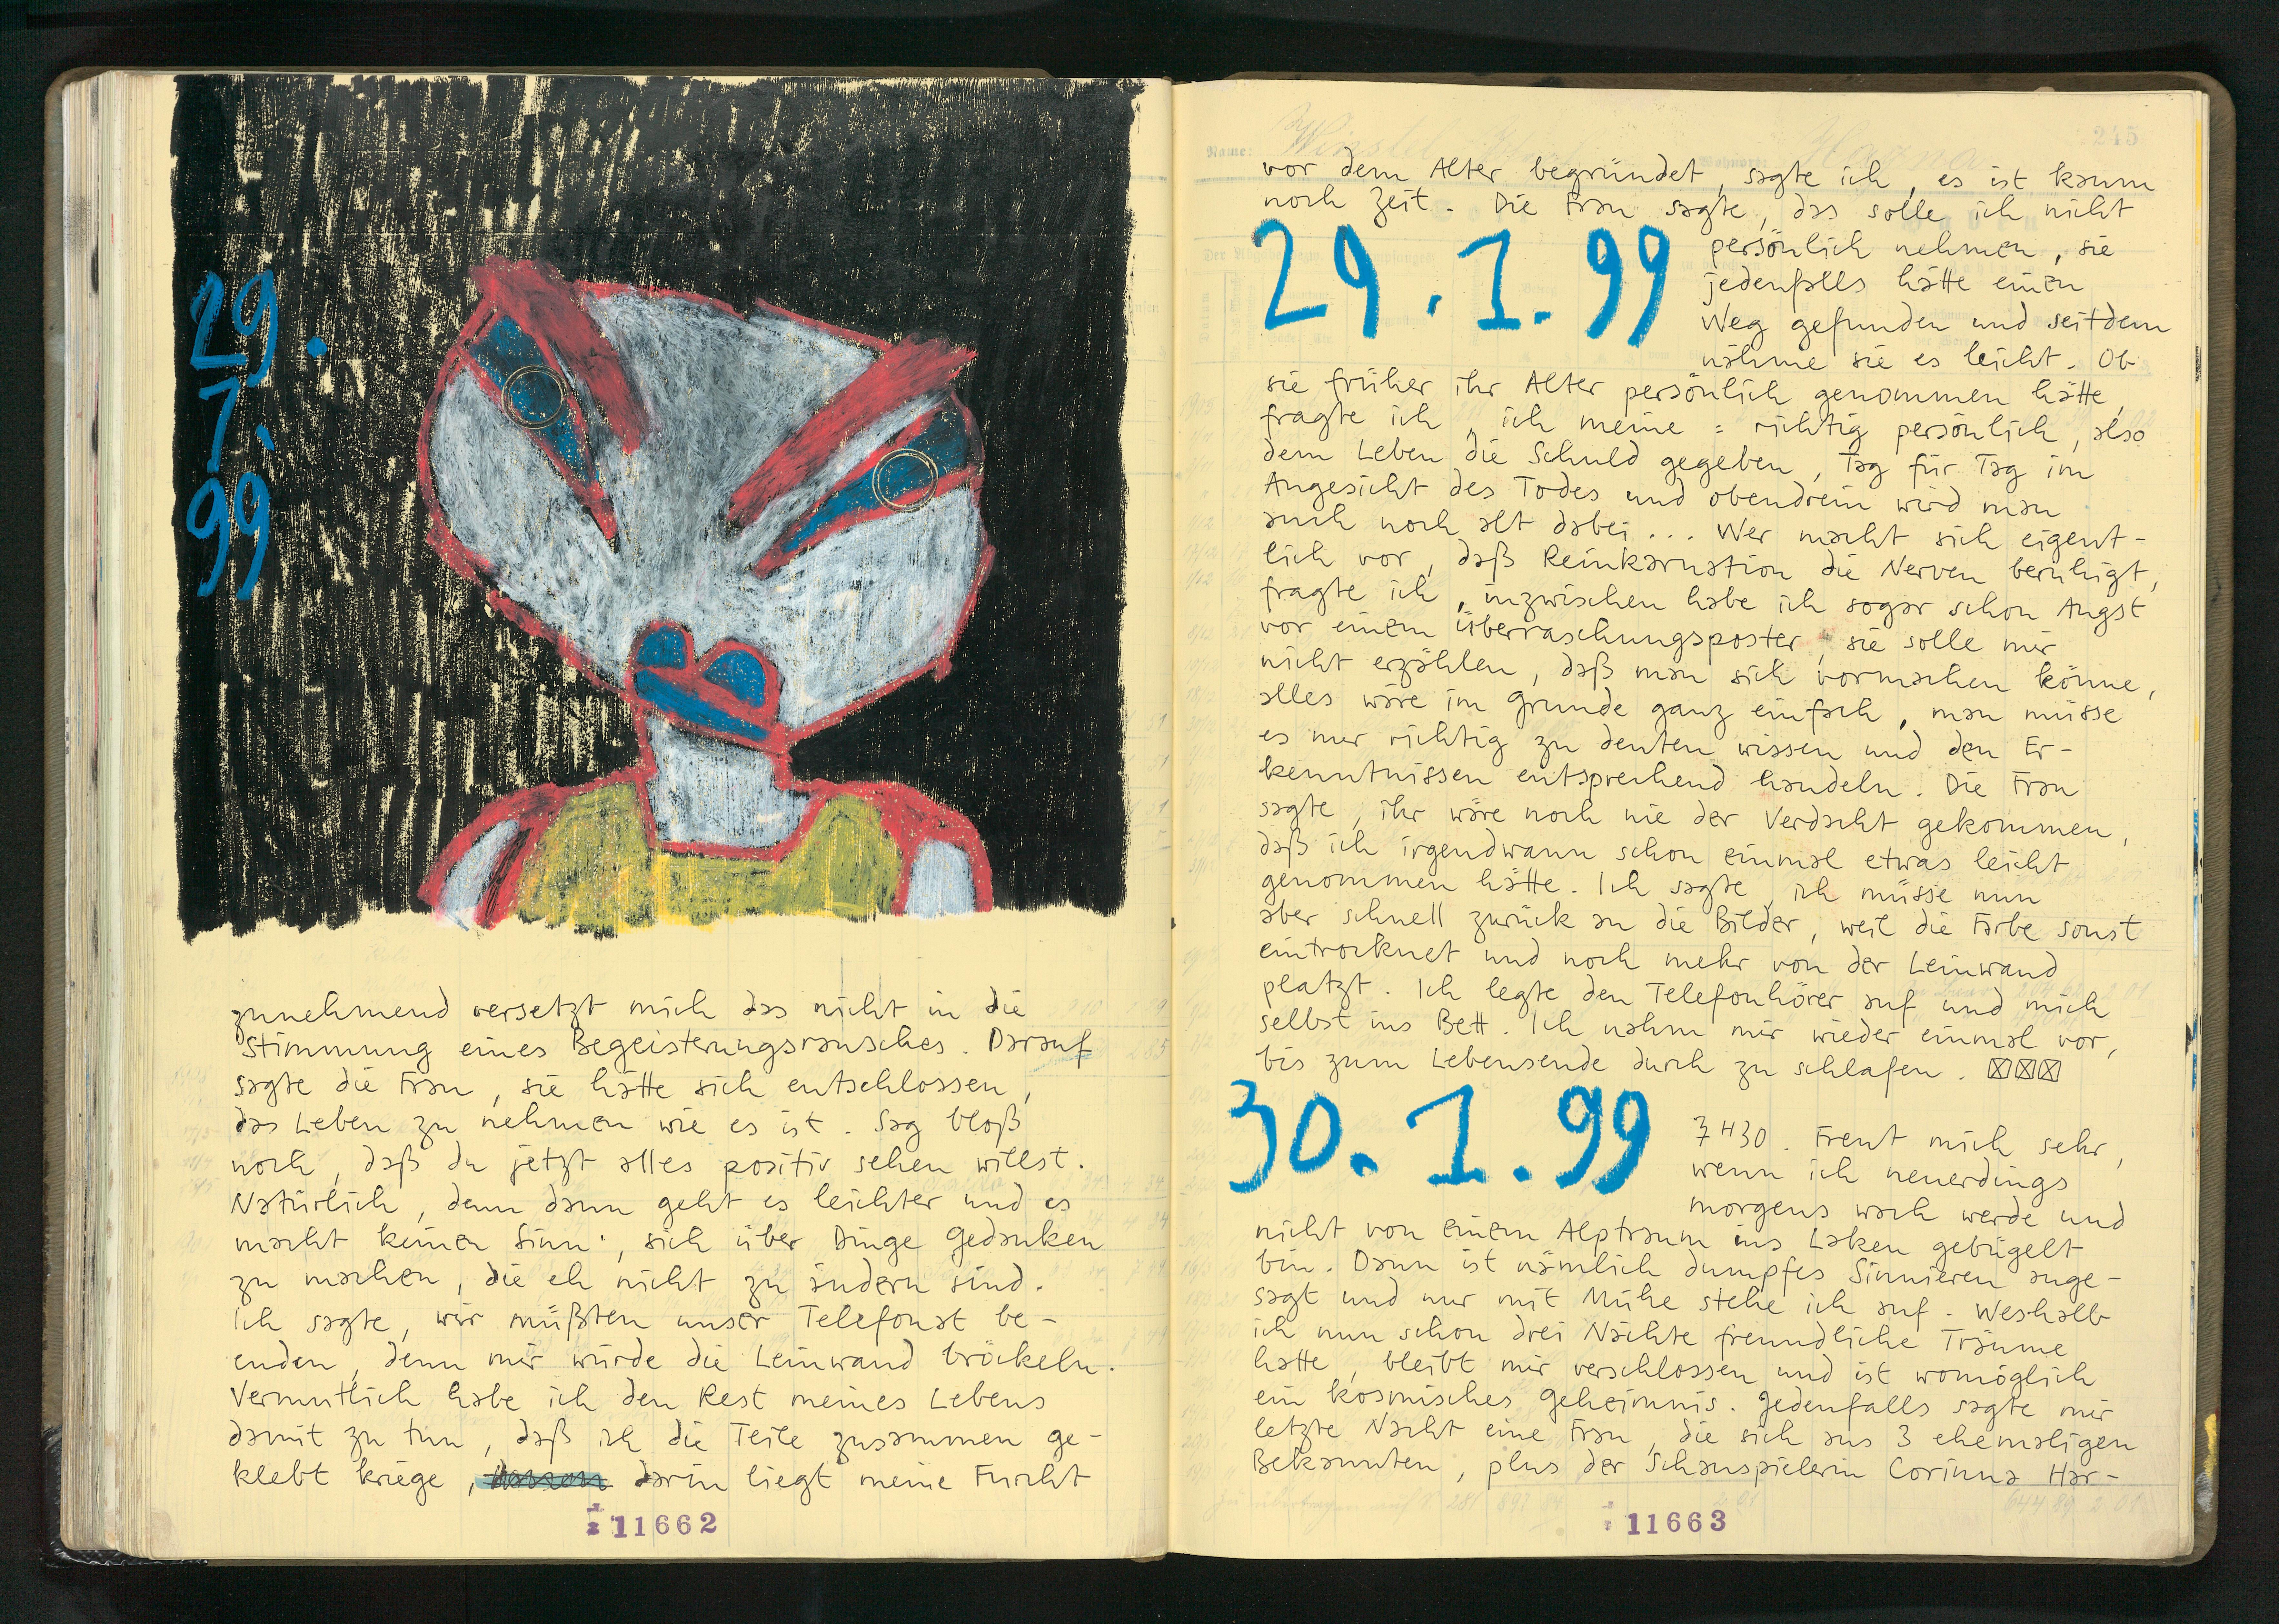 29.
1.
99
zunehmend versetzt mich das nicht in die
Stimmung eines Begeisterungsrausches. Darauf
sagte die Frau, sie hätte sich entschlossen,
das Leben zu nehmen wie es ist. Sag bloß
noch, daß du jetzt alles positiv sehen willst.
Natürlich, denn dann geht es leichter und es
macht keinen Sinn, sich über Dinge Gedanken
zu machen, die eh nicht zu ändern sind.
Ich sagte, wir müßten unser Telefonat be-
enden, denn mir würde die Leinwand bröckeln.
Vermutlich habe ich den Rest meines Lebens
damit zu tun, daß ich die Teile zusammen ge-
klebt kriege, darin liegt meine Furcht
11662
245
Name:
Wohnort:
vor dem Alter begründet, sagte ich, es ist kaum
noch Zeit. Die Frau sagte, das solle ich nicht
29.1.99
persönlich nehmen, sie
jedenfalls hätte einen
Weg gefunden und seitdem
nähme sie es leicht. Ob
sie früher ihr Alter persönlich genommen hätte,
fragte ich, ich meine: richtig persönlich, also
dem Leben die Schuld gegeben, Tag für Tag im
Angesicht des Todes und obendrein wird man
auch noch alt dabei... Wer macht sich eigent-
lich vor, daß Reinkarnation die Nerven beruhigt,
fragte ich, inzwischen habe ich sogar schon Angst
vor einem Überraschungsposter, sie solle mir
nicht erzählen, daß man sich vormachen könne,
alles wäre im Grunde ganz einfach, man müsse
es nur richtig zu deuten wissen und den Er-
kenntnissen entsprechend handeln. Die Frau
sagte, ihr wäre noch nie der Verdacht gekommen,
daß ich irgendwann schon einmal etwas leicht
genommen hätte. Ich sagte, ich müsse nun
aber schnell zurück an die Bilder, weil die Farbe sonst
eintrocknet und noch mehr von der Leinwand
platzt. Ich legte den Telefonhörer auf und mich
selbst ins Bett. Ich nahm mir wieder einmal vor,
bis zum Lebensende durch zu schlafen.
30.1.99
7H30. Freut mich sehr,
wenn ich neuerdings
morgens wach werde und
nicht von einem Alptraum ins Laken gebügelt
bin. Dann ist nämlich dumpfes Sinnieren ange-
sagt und nur mit Mühe stehe ich auf. Weshalb
ich nun schon drei Nächte freundliche Träume
hatte, bleibt mir verschlossen und ist womöglich
ein kosmisches Geheimnis. Jedenfalls sagte mir
letzte Nacht eine Frau, die sich aus 3 ehemaligen
Bekannten, plus der Schauspielerin Corinna Har-
11663